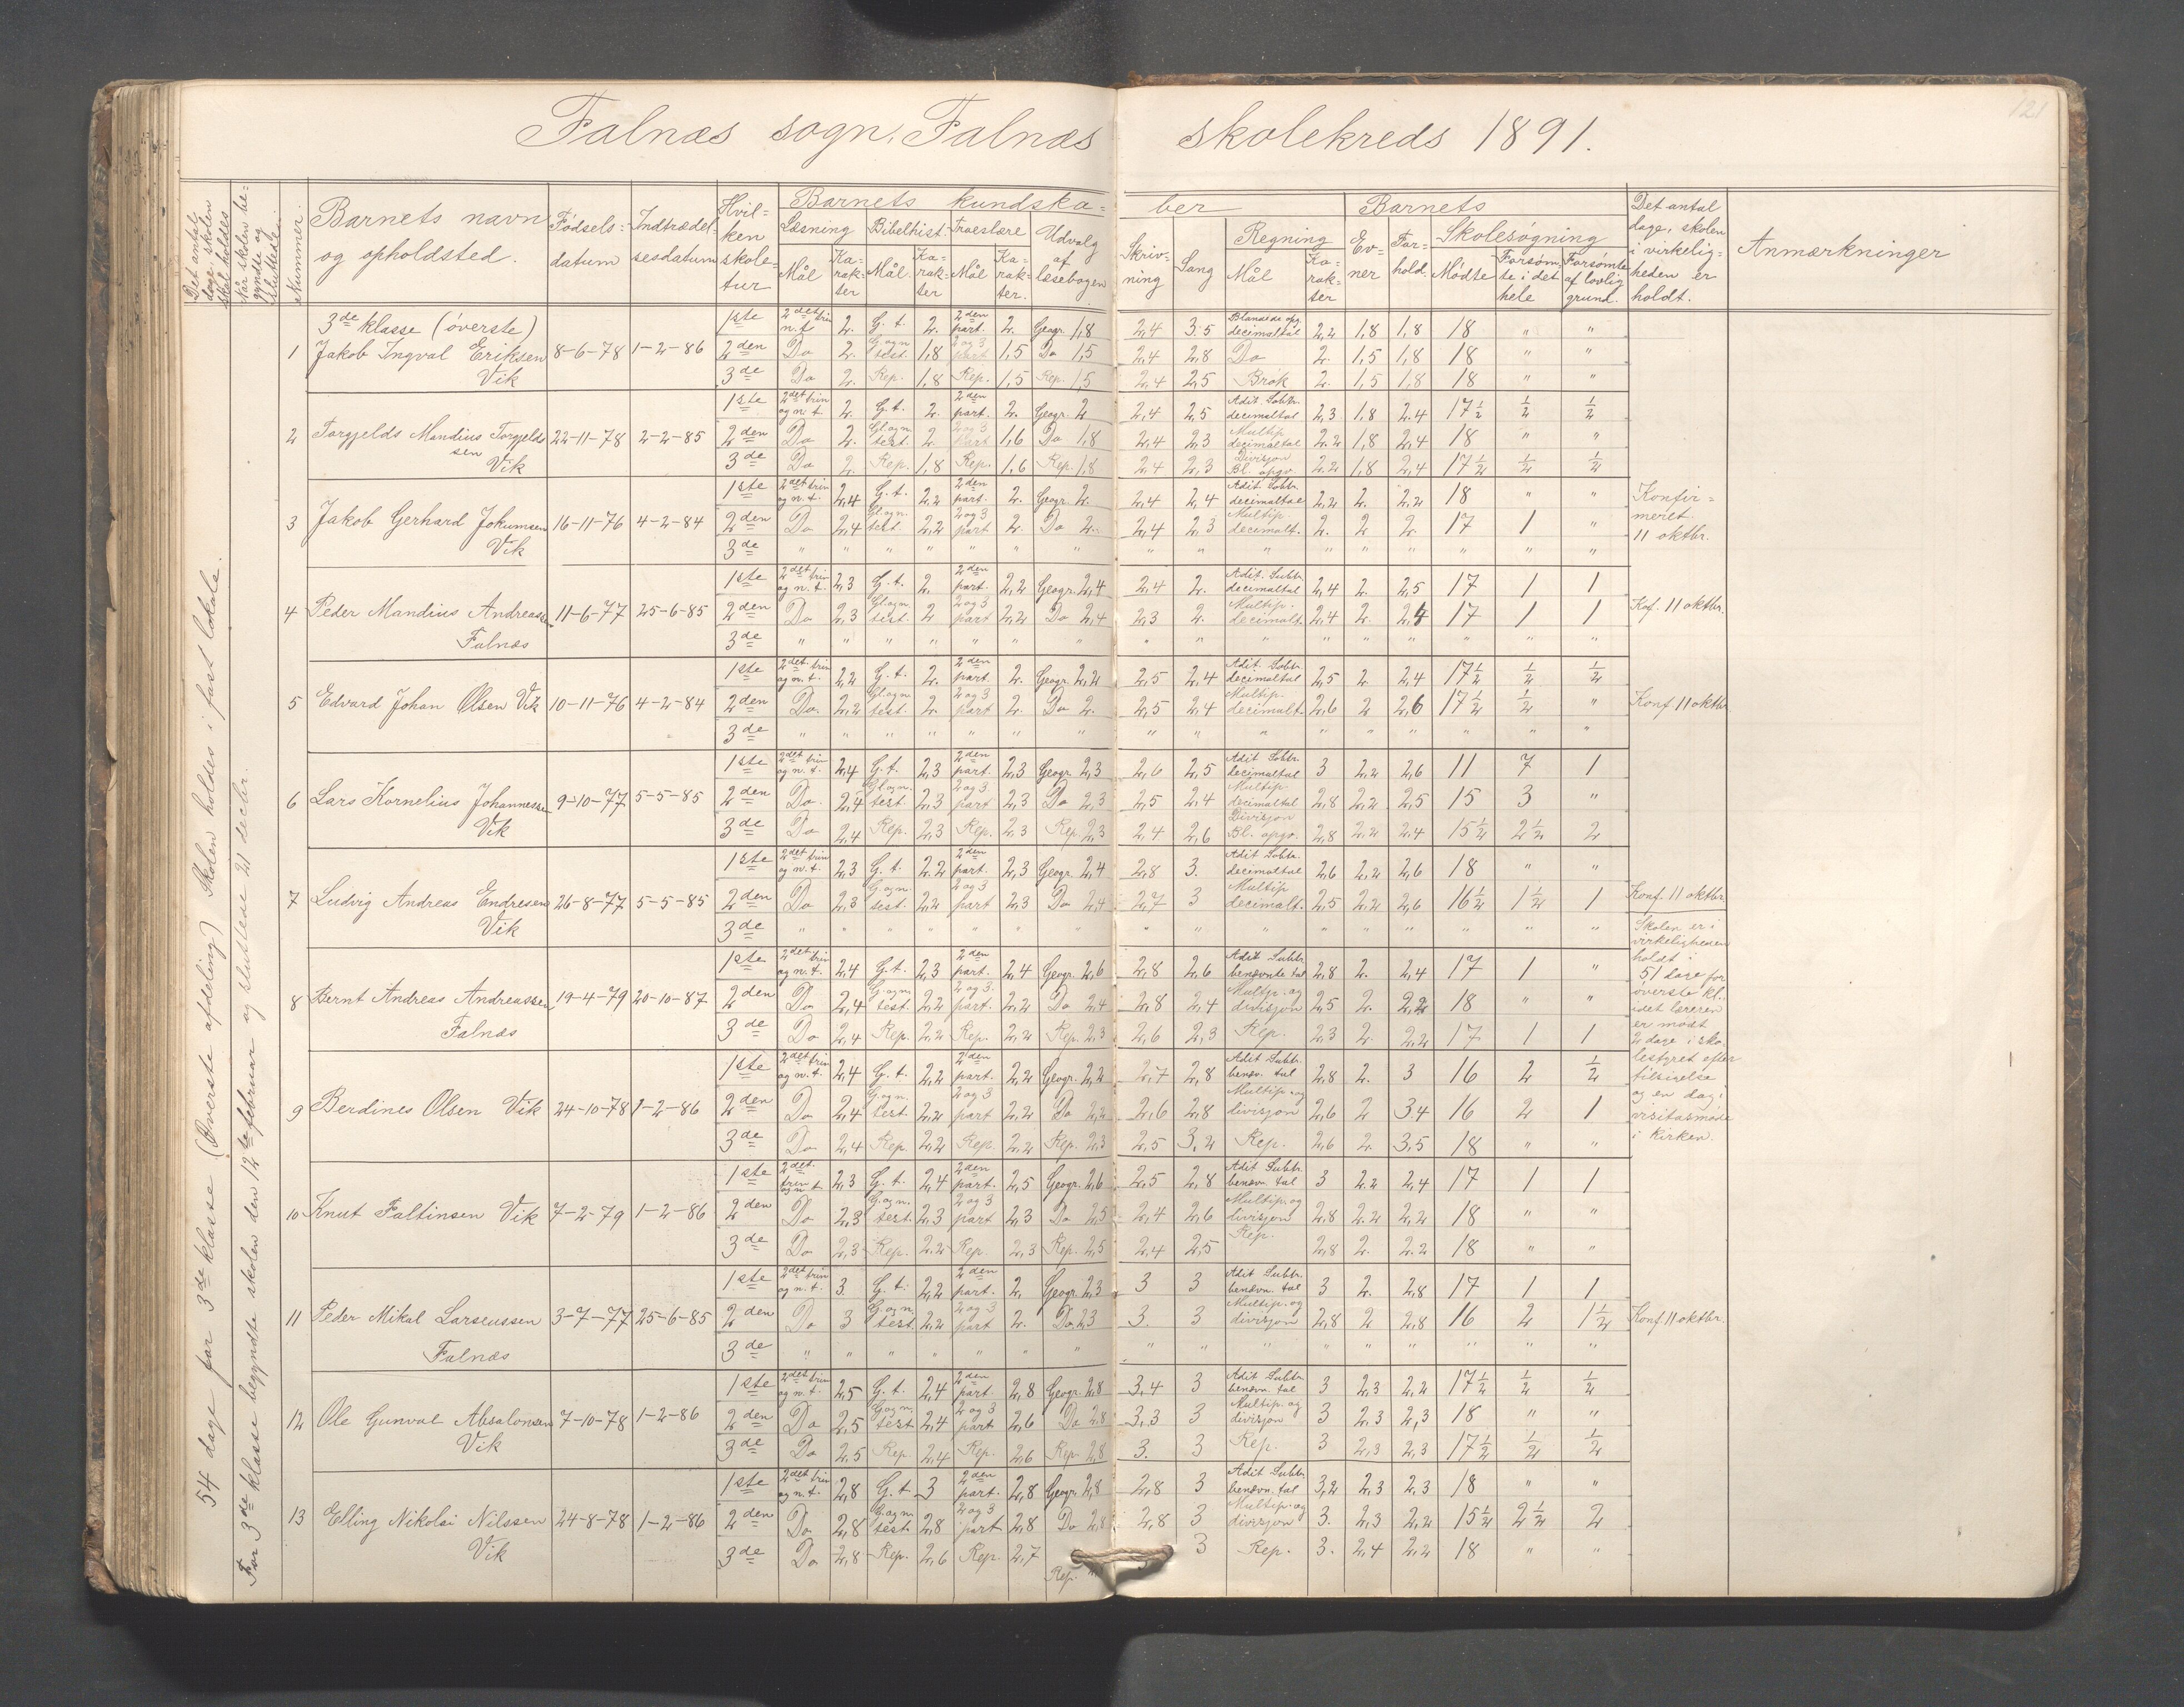 121
Falnæs sogn, Falnæs skolekreds 1891.
Det antal dage skolen skal holdes
Når skolen begyndte og sluttede
Nummer.
Barnets navn og opholdsted.
Fødselsdatum
Indtrædelsesdatum
Hvilken skoletur
Barnets kundskaber
Læsning Mål Karakter
Bibelhist. Mål Karakter
Troeslære Mål Karakter.
Udvalg af læsebogen
Skrivning
Sang
Regning Mål Karakter
Barnets
Evner
Forhold.
Skolesøgning
Mødte
Forsømte i det hele
Forsømte af lovlig grund.
Det antal dage, skolen i virkeligheden er holdt.
Anmærkninger
54 dage for 3de klasse (Øverste afdeling) Skolen holdes i fast lokale.
For 3de klasse begyndte skolen den 12te februar og sluttede 21 decbr.
3de klasse (øverste)
1 Jakob Ingval Eriksen Vik 8-6-78 1-2-86
1ste 2det trin n. t. 2. G. t. 2. 2den part. 2. Geogr. 1,8 2,4 3.5 Blandede opg. decimaltal 2,2 1,8 1,8 18 " "
2den Do 2. G. og n. test. 1,8 2 og 3 part 1,5 Do 1,5 2,4 2,8 Do 2. 1,5 1,8 18 " "
3de Do 2. Rep. 1,8 Rep. 1,5 Rep. 1,5 2,4 2,5 Brøk 2. 1,5 1,8 18 " "
2 Torgjelds Mandius Torgjeldssen Vik 22-11-78 2-2-85
1ste 2det trin og n. t. 2. G. t. 2. 2den part. 2. Geogr. 2 2,4 2,5 Adit. Sobtr. decimaltal 2,3 1,8 2.4 17½ ½ ½
2den Do 2. Gl. og n. test. 2. 2 og 3 part 1,6 Do 1,8 2,4 2,3 Multip decimaltal 2.2 1,8 2,4 18 " "
3de Do 2. Rep. 1,8 Rep. 1,6 Rep. 1,8 2,4 2,3 Divisjon Bl. opgv. 2.2 1,8 2,4 17½ ½ ½
3 Jakob Gerhard Jokumsen Vik 16-11-76 4-2-84
1ste 2det trin og n. t. 2,4 G. t. 2,2 2den part. 2. Geogr. 2. 2,4 2,4 Adit. Sobtr. decimaltal 2,2 2. 2,2 18 " " Konfirmeret. 11 oktbr.
2den Do. 2,4 Gl. og n. test. 2,2 2 og 3 part 2. Do 2. 2,4 2,3 Multip decimalt. 2. 2 2. 17 1 "
3de " " " " " " " " " " " " " " " "
4 Peder Mandius Andreassen Falnæs 11-6-77 25-6-85
1ste 2det trin og n. t. 2,3 G. t. 2. 2den part. 2,2 Geogr. 2,4 2.4 2. Adit. Subtr. decimaltal 2,4 2. 2,5 17 1 1
2den Do 2,3 Gl. og n. test. 2 2 og 3 part 2,2 Do 2,4 2,3 2. Multip. decimalt. 2,4 2. 2,4 17 1 1 Kof. 11 oktbr.
3de " " " " " " " " " " " " " " " "
5 Edvard Johan Olsen Vik 10-11-76 4-2-84
1ste 2det trin og n. t. 2,2 G. t. 2. 2den part. 2. Geogr. 2,2 2,5 2,4 Adit. Sobtr. decimaltal 2,5 2 2,4 17½ ½ ½
2den Do. 2,2 Gl. og n. test. 2. 2 og 3 part 2. Do 2. 2,5 2,4 Multip. decimalt. 2,6 2 2,6 17½ ½ " Konf. 11 oktbr
3de " " " " " " " " " " " " " " " "
6 Lars Kornelius Johannessen Vik 9-10-77 5-5-85
1ste 2det trin og n. t. 2,4 G. t. 2,3 2den part. 2,3 Geogr. 2,3 2,6 2,5 Adit Sobtr. decimaltal 3 2,2 2,6 11 7 1
2den Do. 2,4 Gl. og n. test. 2,3 2 og 3 part 2,3 Do 2,3 2,5 2,4 Multip. decimaltal 2,8 2,2 2,5 15 3 "
3de Do 2,4 Rep. 2,3 Rep. 2,3 Rep. 2,3 2,4 2,6 Divisjon Bl. opgv. 2,8 2.2 2.4 15½ 2½ 2
7 Ludvig Andreas Endresen Vik 26-8-77 5-5-85
1ste 2det trin og n. t. 2,3 G. t. 2.2 2den part. 2,3 Geogr. 2,4 2,8 3. Adit Sobtr. decimaltal 2,6 2,2 2,6 18 " "
2den Do 2,3 G. og n. test. 2,2 2 og 3 part 2,3 Do 2,4 2,7 3 Multip decimalt. 2,5 2.2 2,6 16½ 1½ 1 Konf. 11 oktbr.
3de " " " " " " " " " " " " " " " "
Skolen er i virkeligheden holdt i 51 dage for øverste kl., idet læreren er mødt 2 dage i skolestyret efter tilsigelse og en dag i visitasmøde i kirken.
8 Bernt Andreas Andreassen Falnæs 19-4-79 20-10-87
1ste 2det trin og n. t. 2,4 G. t. 2,3 2den part. 2,4 Geogr. 2,6 2,8 2,6 Adit Subtr. benævnte tal 2,8 2. 2,4 17 1 "
2den Do 2,4 G. og n. test. 2,2 2 og 3. part. 2,2 Do 2,4 2,8 2,4 Multip. og divisjon 2,5 2. 2,2 18 " "
3de Do 2,4 Rep. 2,2 Rep. 2,2 Rep. 2,3 2,6 2,3 Rep. 2,3 2. 2,2 17 1 1
9 Berdines Olsen Vik 24-10-78 1-2-86
1ste 2det trin og n. t. 2,4 G. t. 2,2 2den part. 2,2 Geogr. 2,2 2,7 2,8 Adit Subtr. benæv. tal 2,8 2. 3 16 2 ½
2den Do 2,4 G. og n. test 2,2 2 og 3 part 2,2 Do 2,2 2,6 2,8 Multip. og divisjon 2,6 2 3.4 16 2 1
3de Do 2,4 Rep. 2,2 Rep. 2,2 Rep. 2,3 2,5 3,2 Rep. 2,6 2. 3,5 18 " "
10 Knut Faltinsen Vik 7-2-79 1-2-86
1ste 2det trin og n t. 2,3 G. t. 2,4 2den part. 2,5 Geogr. 2,6 2,5 2,8 Adit Subtr. benævn. tal 3 2.2 2,4 17 1 1
2den Do 2,3 G. og n. test. 2,3 2 og 3 part 2,3 Do 2,5 2,4 2,6 Multip. og divisjon 2,8 2.2 2,2 18 " "
3de Do 2,3 Rep. 2.2 Rep. 2,3 Rep. 2,5 2,4 2,5 Rep. 2,8 2. 2.2 18 " "
11 Peder Mikal Larseussen Falnæs 3-7-77 25-6-85
1ste 2det trin og n. t. 3. G. t. 2,2 2den part. 2. Geogr. 2,3 3 3 Adit Subtr. benævn. tal 3 2. 2,8 17 1 1
2den Do 3 G. og n. test. 2.2 2 og 3 part 2. Do 2,3 3. 3 Multip. og divisjon 2,8 2 2,8 16 2 1½ Konf 11 oktbr.
3de " " " " " " " " " " " " " " " "
12 Ole Gunval Absalonsen Vik 7-10-78 1-2-86
1ste 2det trin og n. t. 2,5 G. t. 2,4 2den part. 2,8 Geogr. 2,8 3,4 3 Adit Subtr. benævn. tal 3 2,3 2,2 17½ ½ ½
2den Do 2,5 G. og n. test 2,4 2 og 3 part 2,6 Do 2,8 3,3 3 Multip. og divisjon 3 2,3 2,3 18 " "
3de Do 2,5 Rep. 2,4 Rep. 2,6 Rep. 2,8 3. 3 Rep. 3 2,3 2,3 17½ ½ ½
13 Elling Nikolai Nilssen Vik 24-8-78 1-2-86
1ste 2det trin og n. t. 2,8 G. t. 3 2den part. 2,8 Geogr. 2,8 2,8 3 Adit Subtr. benævn. tal 3,2 2,3 2,3 18 " "
2den Do 2,8 G. og n. test. 2,8 2 og 3 part 2,8 Do 2,8 2,8 3 Multip. og divisjon 3. 2,3 2,2 15½ 2½ 2
3de Do 2,8 Rep. 2,6 Rep. 2,7 Rep. 3 Rep. 3. 2,4 2,2 18 " "